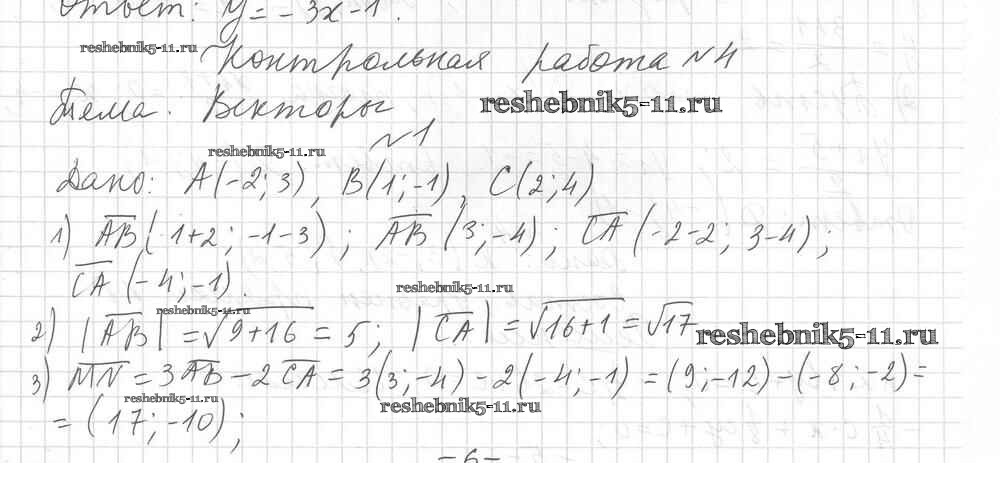 Ответ: y = - 3x - 1.
reshebnik5-11.ru
Контрольная работа №4
Тема. Векторы
reshebnik5-11.ru
№1
reshebnik5-11.ru
Дано: A(-2; 3), B(1; -1), C(2; 4)
1) A̅B̅(1+2; -1-3); A̅B̅(3; -4); C̅A̅(-2-2; 3-4);
C̅A̅(-4; -1).
reshebnik5-11.ru
reshebnik5-11.ru
2) |A̅B̅| = √9+16 = 5; |C̅A̅| = √16+1 = √17
reshebnik5-11.ru
3) M̅N̅ = 3A̅B̅ - 2C̅A̅ = 3(3; -4) - 2(-4; -1) = (9; -12) - (-8; -2) =
reshebnik5-11.ru
reshebnik5-11.ru
= (17; -10);
- 6 -